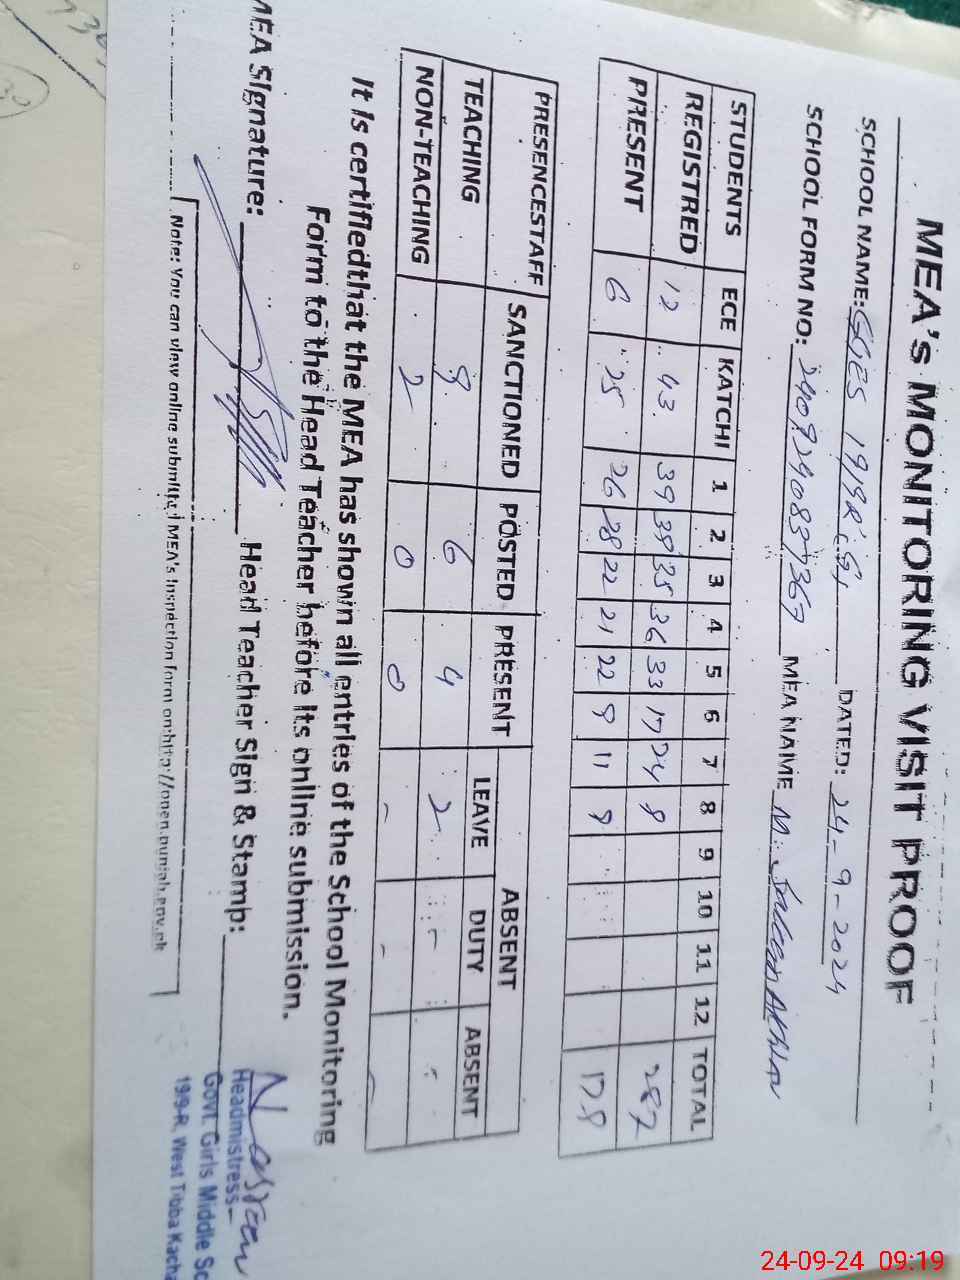 MEA's MONITORING VISIT PROOF
SCHOOL NAME: GGES 191R(G) DATED: 24-9-2024
SCHOOL FORM NO: MEA NAME M.
STUDENTS ECE KATCHI 1 2 3 4 5 6 7 8 9 10 11 12 TOTAL
REGISTRED 12 43 39 38 35 36 33 17 24 8 287
PRESENT 6 25 26 28 22 21 22 9 11 8 178
PRESENCESTAFF SANCTIONED POSTED PRESENT ABSENT
LEAVE DUTY ABSENT
TEACHING 9 6 4 2 - -
NON-TEACHING 2 0 0 - - -
It is certifiedthat the MEA has shown all entries of the School Monitoring
Form to the Head Teacher before its online submission.
MEA Signature: Head Teacher Sign & Stamp:
Nasreen
Headmistress
Govt. Girls Middle Sc
199-R, West Tibba Kacha
Note: You can view online submitted MEA's Inspection form on:http://open.punjab.gov.pk
24-09-24 09:19